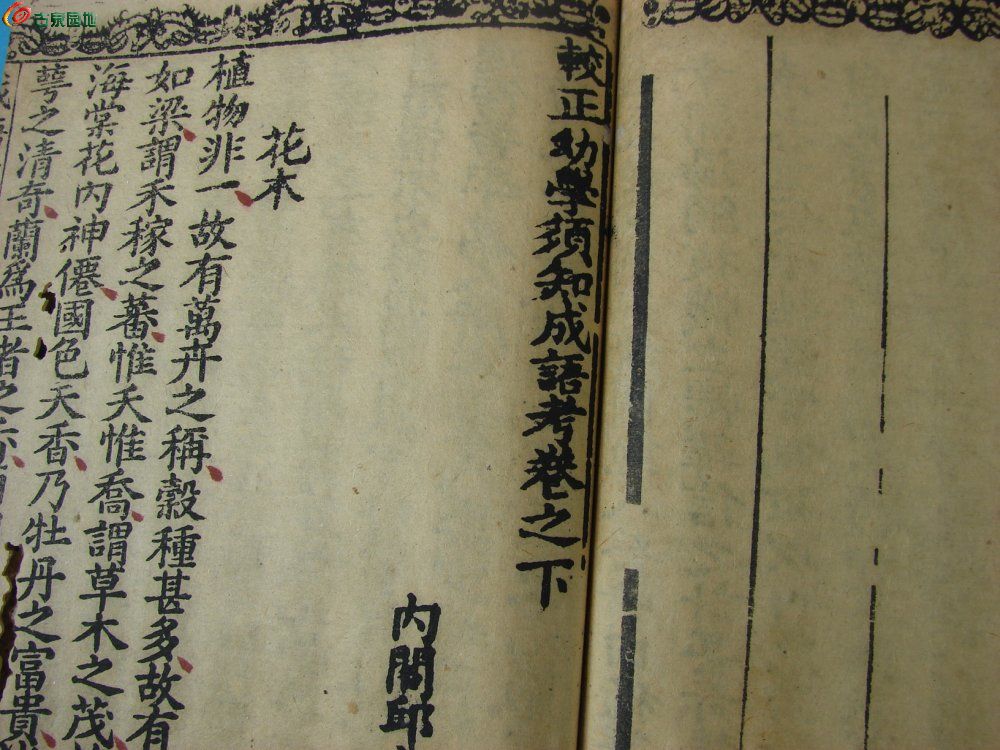 古泉园地
較正幼學須知成語考卷之下
内閣邱
花木
植物非一故有萬卉之稱穀種甚多故有
如梁謂禾稼之蕃惟夭惟喬謂草木之茂
海棠花内神僊國色天香乃牡丹之富貴
萼之清奇蘭爲王者之